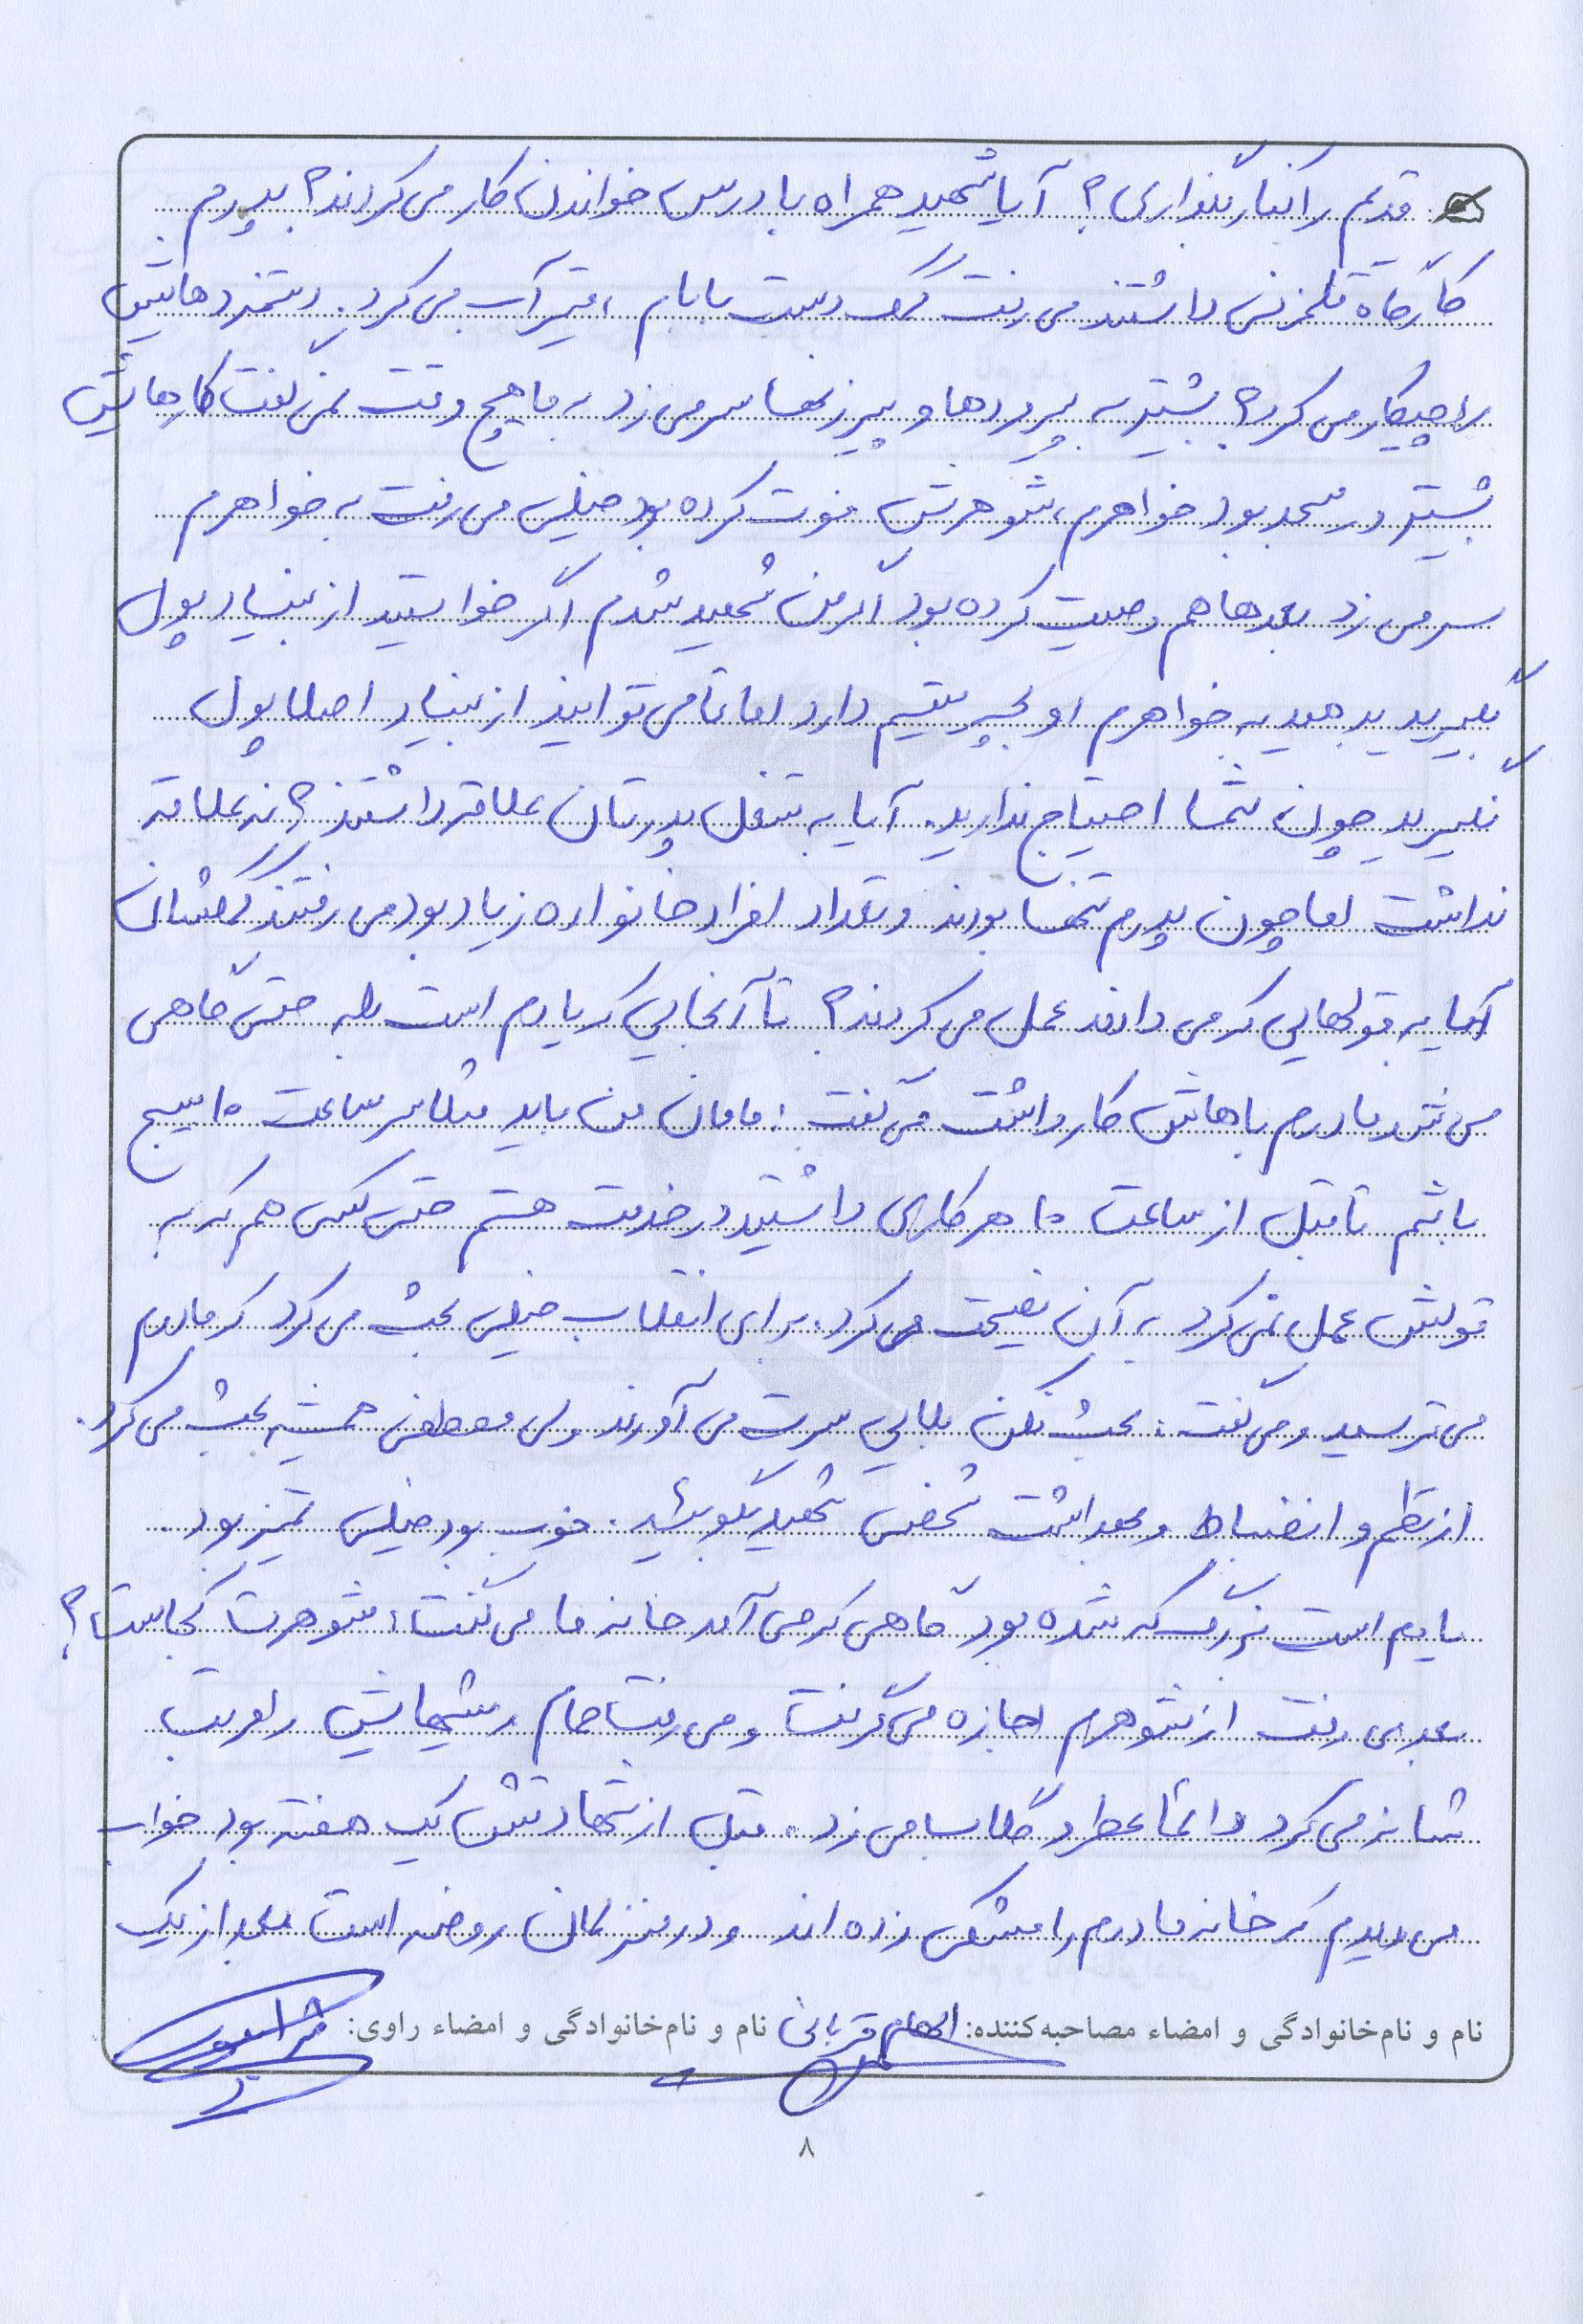 قدیم را کنار بگذاری؟ آیا شهید همراه با درس خواندن کار می‌کردند؟ پدرم
کارگاه قلمزنی داشتند می‌رفت کمک دست بابام، قیر آب می‌کرد. دستمزدهایش
را چیکار می‌کرد؟ بیشتر به پیرمردها و پیرزنها سر می‌زد به ما هیچ وقت نمی‌گفت کارهایش
بیشتر در مسجد بود خواهرم، شوهرش فوت کرده بود خیلی می‌رفت به خواهرم
سر می‌زد بعدها هم وصیت کرده بود اگر من شهید شدم اگر خواستید از بنیاد پول
بگیرید بدهید به خواهرم او بچه یتیم دارد اما شما می‌توانید از بنیاد اصلا پول
نگیرید چون شما احتیاج ندارید. آیا به شغل پدرتان علاقه داشتند؟ نه علاقه
نداشت اما چون پدرم تنها بودند و تعداد افراد خانواده زیاد بود می‌رفتند کمکشان
آیا به قولهایی که می‌دادند عمل می‌کردند؟ تا آنجایی که یادم است بله حتی گاهی
می‌شد مادرم باهاش کار داشت می‌گفت: مامان من باید مثلا سر ساعت ۱۰ بسیج
باشم تا قبل از ساعت ۱۰ هر کاری داشتید در خدمت هستم حتی کسی هم که به
قولش عمل نمی‌کرد به آن نصیحت می‌کرد. برای انقلاب خیلی بحث می‌کرد که مادرم
می‌ترسید و می‌گفت: بحث نکن بلایی سرت می‌آورند ولی مصطفی همیشه بحث می‌کرد.
از نظم و انضباط و بهداشت شخصی شهید بگوئید. خوب بود خیلی تمیز بود.
یادم است بزرگ که شده بود گاهی که می‌آمد خانه ما می‌گفت: شوهرت کجاست؟
بعد می‌رفت از شوهرم اجازه می‌گرفت و می‌رفت حمام ریشهایش را مرتب
شانه می‌کرد دائما عطر و گلاب می‌زد. قبل از شهادتش یک هفته بود خواب
می‌دیدم که خانه مادرم را مشکی زده‌اند و در منزلمان روضه است بعد از یک
نام و نام‌خانوادگی و امضاء مصاحبه‌کننده: الهام قربانی نام و نام‌خانوادگی و امضاء راوی:
۸